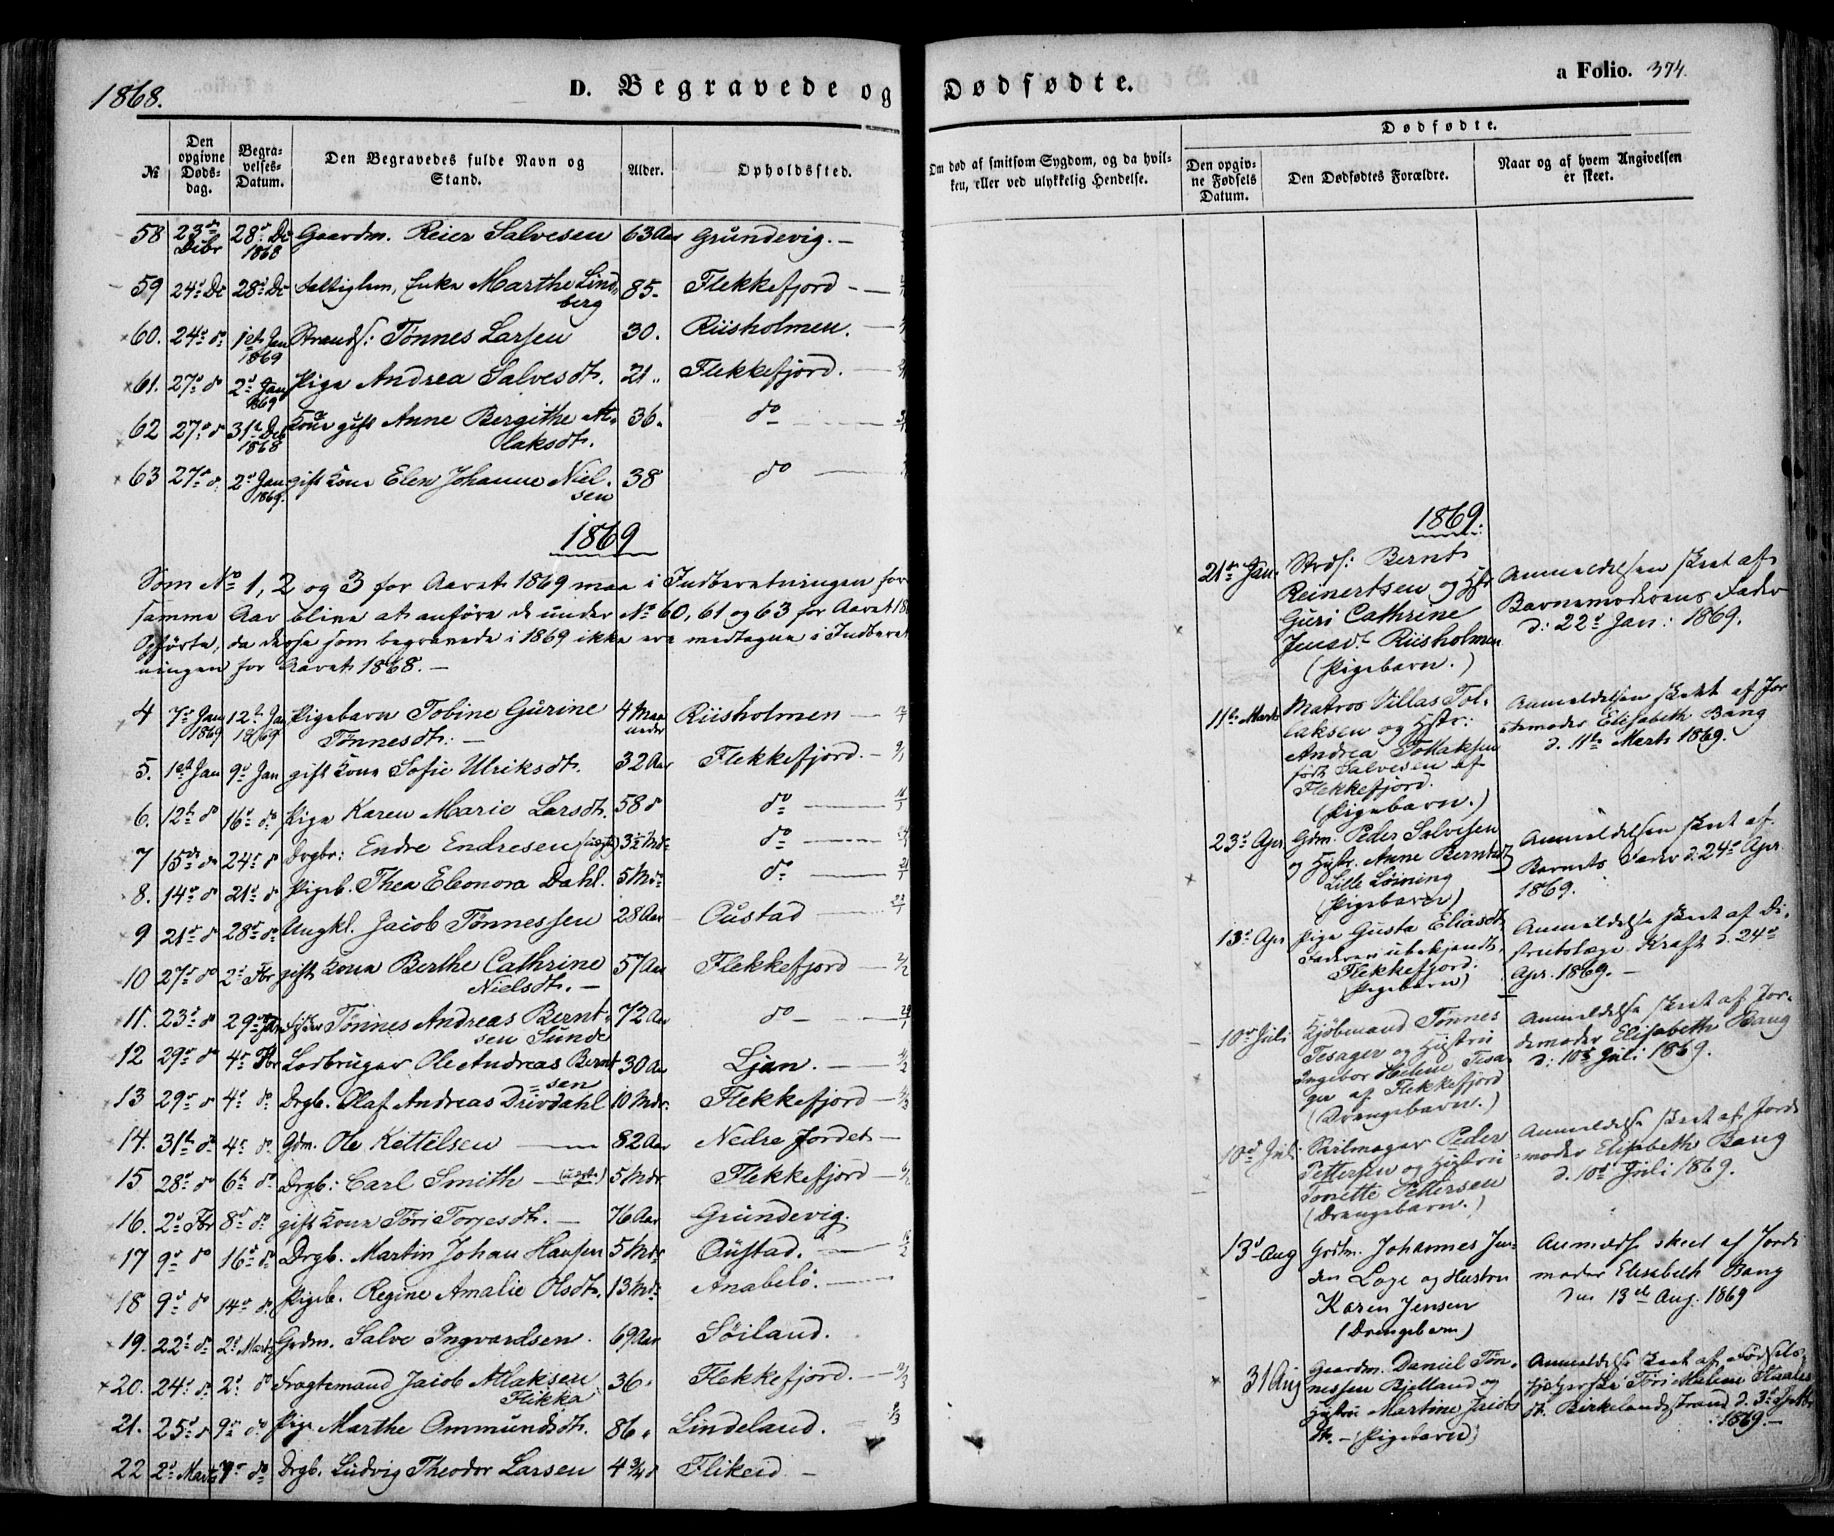 1868.
D. Begravede og Dødfødte.
a Folio. 374.
№
Den opgivne Døds-dag.
Begra-velses-Datum.
Den Begravedes fulde Navn og Stand.
Alder.
Opholdssted.
Om død af smitsom Sygdom, og da hvil-ken, eller ved ulykkelig Hendelse.
Dødfødte.
Den opgiv-ne Fødsels Datum.
Den Dødfødtes Forældre.
Naar og af hvem Angivelsen er skeet.
58 23de Decbr 28de Dec 1868 Gaardm. Reier Salvesen 63 Aar Grundevig. –
59 24de Dec 28de Dec Fattiglem, Enke Marthe Lind-berg 85. Flekkefjord –
60. 24de do 1ste Jan 1869 Strands: Tønnes Larsen 30. Riisholmen. –
61. 27de do 2de Jan 1869 Pige Andrea Salvesdt. 21 Flekkefjord. –
62 27de do 31te Dec 1868 Kone gift Anne Bergithe At-laksdt. 36. do
63 27de do 2de Jan 1869. gift Kone Elen Johanne Niel-sen 38 do
1869
Som No 1, 2 og 3 for Aaret 1869 maa i Indberetningen for
samme Aar blive at anføre de under No 60, 61 og 63 for Aaret 18
Opførte, da disse som begravede i 1869 ikke ere medtagne i Indberet
ningen for Aaret 1868. –
4 7de Jan 1869 12te Jan 1869 Pigebarn Tobine Gurine Tønnesdt: – 4 Maa neder Riisholmen –
5. 1ste Jan 9de Jan gift Kone Sofie Ulriksdt. 32 Aar Flekkefjord. –
6. 12te do 16de do Pige Karen Marie Larsdt. 58 do do
7 15de do 24de do Drgbr: Endre Endresen (uægte) 3½ Mdr do
8. 14de do 21de do Pigeb. Thea Eleonora Dahl. 5 Mdr do
9 21de do 28de do Ungkl. Jacob Tønnessen 28 Aar Oustad
10 27de do 2de Fbr gift Kone Berthe Cathrine Nielsdt. – 57 Aar Flekkefjord –
11. 23de do 29de Jan Tønnes Andreas Bernt-sen Sunde 72 Aar do –
12 29de do 4de Fbr Lodbruger Ole Andreas Bernt-sen 30 Aar Ljan. –
13 29de do 4de do Drgb. Olaf Andreas Drivdahl 10 Mdr. Flekkefjord –
14. 31te do 4de do Gdm. Ole Kettelsen 82 Aar Nedre Jordet –
15 28de do 6te do Drgb: Carl Smith – (uægte) 5 Mdr Flekkefjord
16. 2de Fbr 8de do gift Kone Tøri Torjesdt. – 76 Aar Grundevig.
17 9de do 16de do Drgb. Martin Johan Hansen 5 Mdr Oustad. –
18 9de do 14de do Pigeb. Regine Amalie Olsdt. 13 Mdr Anabelø. –
19. 22de do 2de Marts Grdm. Salve Ingvardsen. 69 Aar Søiland.
20. 24de do. 2de do Fragtemand Jacob Atlaksen Flikka 36. Flekkefjord. –
21. 25de do 9de do Pige Marthe Ommundsdt. 86. Lindeland.
22 2de Marts 9de do Drgb. Ludvig Theodor Larsen 4 ¾ do Flikeid –
1869.
21de Jan. Strds: Bernt
Reinertsen og Hstr
Guri Cathrine
Jensdt. Riisholmen
(Pigebarn.)
Anmeldelsen skeet af
Barnemoderens Fader
d: 22de Jan: 1869.
11te Marts Matros Villas Tol-
laksen og Hstr:
Andrea Tollaksen
født Salvesen af
Flekkefjord.
(Pigebarn.)
Anmeldelsen skeet af Jor
demoder Elisabeth Bang
d. 11te Marts 1869.
23de Apr Gdm. Peder Salvesen
og Hstr. Anne Berntsdt
Lille Løining
(Pigebarn)
Anmeldelsen skeet af
Barnets Fader d. 24de Apr
1869.
13de Apr Pige Gusta Eliasdt.
Faderen ubekjendt.
Flekkefjord.
(Pigebarn)
Anmeldelse skeet af Di-
striktslæge Kraft d. 24de
Apr. 1869. –
10de Juli Kjøbmand Tønnes
Tesager og Hustru
Ingebor Helene Tesa-
ger af Flekkefjord
(Drengebarn.)
Anmeldelse skeet af Jor-
demoder Elisabeth Bang
d: 10de Juli 1869.
10de Juli Seilmager Peder
Pettersen og Hustru
Tonette Pettersen
(Drengebarn.)
Anmeldelse skeet af Jorde
moder Elisabeth Bang
d. 10de Juli 1869.
13de Aug Grdm. Johannes Jen-
sen Loge og Hustru
Karen Jensen
(Drengebarn)
Anmeldse skeet af Jorde
moder Elisabeth Bang
den 13de Aug. 1869
31 Aug Gaardm. Daniel Tøn-
nessen Bjelland og
Hustru Martine Jacobs
dt. – (Pigebarn)
Anmeldelse skeet af Fødsels-
hjelperske Tøri Malene Elias
dt. Birkelandstrand d. 3de Sptbr
1869. –